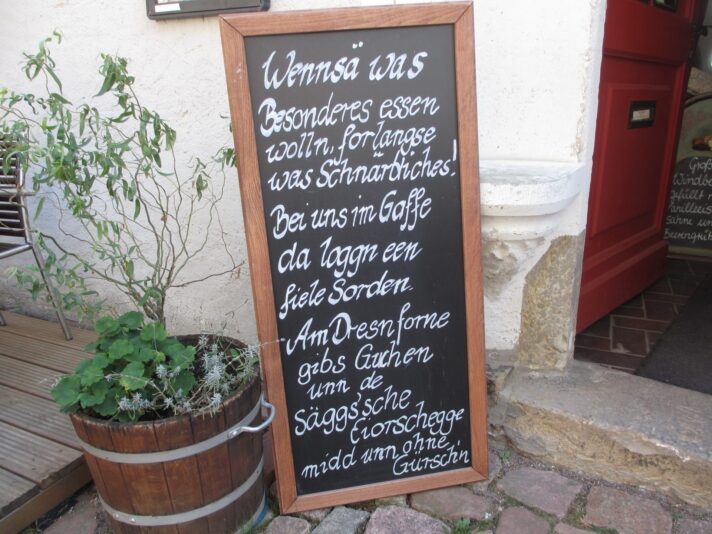 Wennsä was
Besonderes essen
wolln, forlangse
was Schnärdliches!
Bei uns im Gaffe
da loggn een
fiele Sorden.
Am Dresn forne
gibs Guchen
unn de
Säggs'sche
Eiorschegge
midd unn ohne
Gürsch'n
Groß
Windbe
gefüllt m
Vanilleeis
sahne un